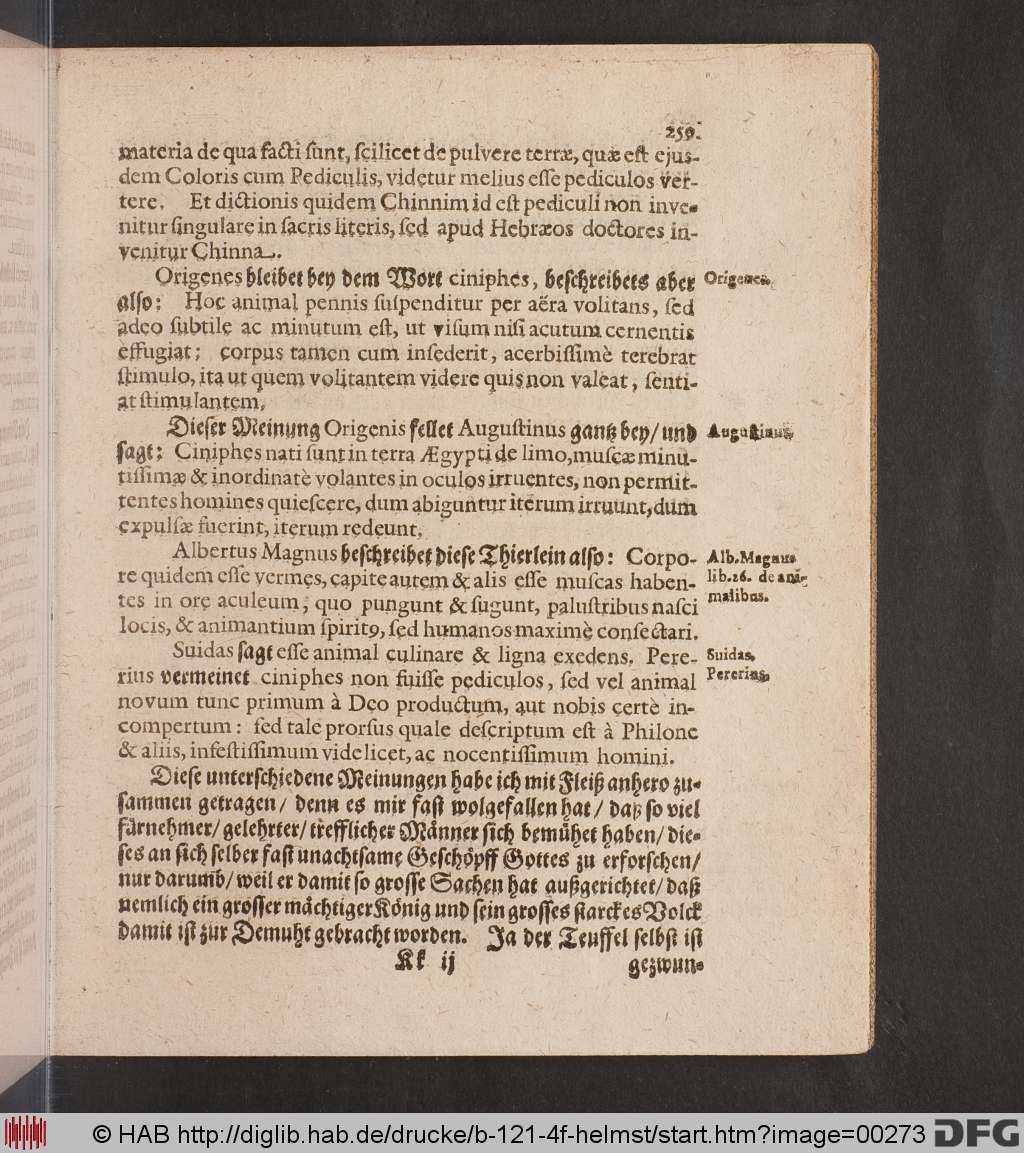 259.
materia de qua facti ſunt, ſcilicet de pulvere terræ, quæ eſt ejus-
dem Coloris cum Pediculis, videtur melius eſſe pediculos ver-
tere. Et dictionis quidem Chinnim id eſt pediculi non inve-
nitur ſingulare in ſacris literis, ſed apud Hebræos doctores in-
venitur Chinna.
Origenes bleibet bey dem Wort ciniphes, beſchreibets aber
Origenes.
alſo: Hoc animal pennis ſuſpenditur per aëra volitans, ſed
adeo ſubtile ac minutum eſt, ut viſum niſi acutum cernentis
effugiat; corpus tamen cum inſederit, acerbiſſimè terebrat
ſtimulo, ita ut quem volitantem videre quis non valeat, ſenti-
at ſtimulantem.
Dieſer Meinung Origenis fellet Auguſtinus gantz bey/ und
Auguſtinus.
ſagt: Ciniphes nati ſunt in terra Ægypti de limo, muſcæ minu-
tiſſimæ & inordinatè volantes in oculos irruentes, non permit-
tentes homines quieſcere, dum abiguntur iterum irruunt, dum
expulſæ fuerint, iterum redeunt.
Albertus Magnus beſchreibet dieſe Thierlein alſo: Corpo-
Alb. Magnus
re quidem eſſe vermes, capite autem & alis eſſe muſcas haben-
lib. 26. de ani-
tes in ore aculeum, quo pungunt & ſugunt, paluſtribus naſci
malibus.
locis, & animantium ſpiritꝰ, ſed humanos maximè conſectari.
Suidas ſagt eſſe animal culinare & ligna exedens. Pere-
Suidas.
rius vermeinet ciniphes non fuiſſe pediculos, ſed vel animal
Pererius.
novum tunc primum à Deo productum, aut nobis certè in-
compertum: ſed tale prorſus quale deſcriptum eſt à Philone
& aliis, infeſtiſſimum videlicet, ac nocentiſſimum homini.
Dieſe unterſchiedene Meinungen habe ich mit Fleiß anhero zu-
ſammen getragen/ denn es mir faſt wolgefallen hat/ daß ſo viel
fürnehmer/ gelehrter/ trefflicher Männer ſich bemühet haben/ die-
ſes an ſich ſelber faſt unachtſame Geſchöpff Gottes zu erforſchen/
nur darumb/ weil er damit ſo groſſe Sachen hat außgerichtet/ daß
nemlich ein groſſer mächtiger König und ſein groſſes ſtarckes Volck
damit iſt zur Demuht gebracht worden. Ja der Teuffel ſelbſt iſt
Kk ij
gezwun-
© HAB http://diglib.hab.de/drucke/b-121-4f-helmst/start.htm?image=00273 DFG